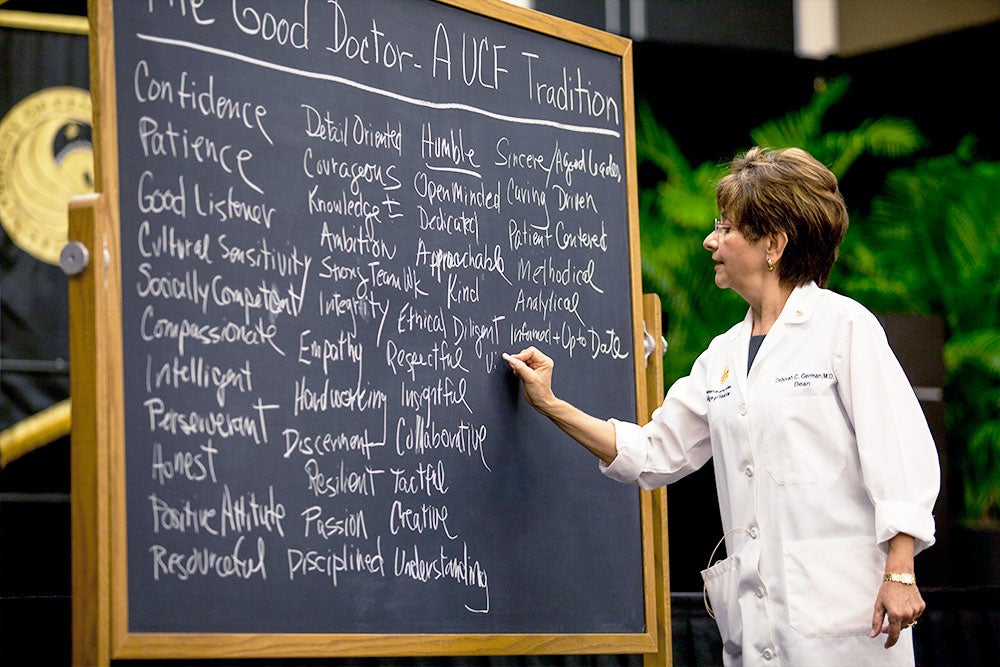 The Good Doctor - A UCF Tradition
Confidence
Patience
Good Listener
Cultural Sensitivity
Socially Competent
Compassionate
Intelligent
Perseverant
Honest
Positive Attitude
Resourceful
Detail Oriented
Courageous
Knowledge
Ambition
Strong Team Wk
Integrity
Empathy
Hardworking
Discernment
Resilient
Passion
Disciplined
Humble
Open Minded
Dedicated
Approachable
Kind
Ethical Diligent
Respectful
Insightful
Collaborative
Tactful
Creative
Understanding
Sincere/A good
Caring Driven
Patient Centered
Methodical
Analytical
Informed + Up to Date
Deborah C. German, M.D.
Dean